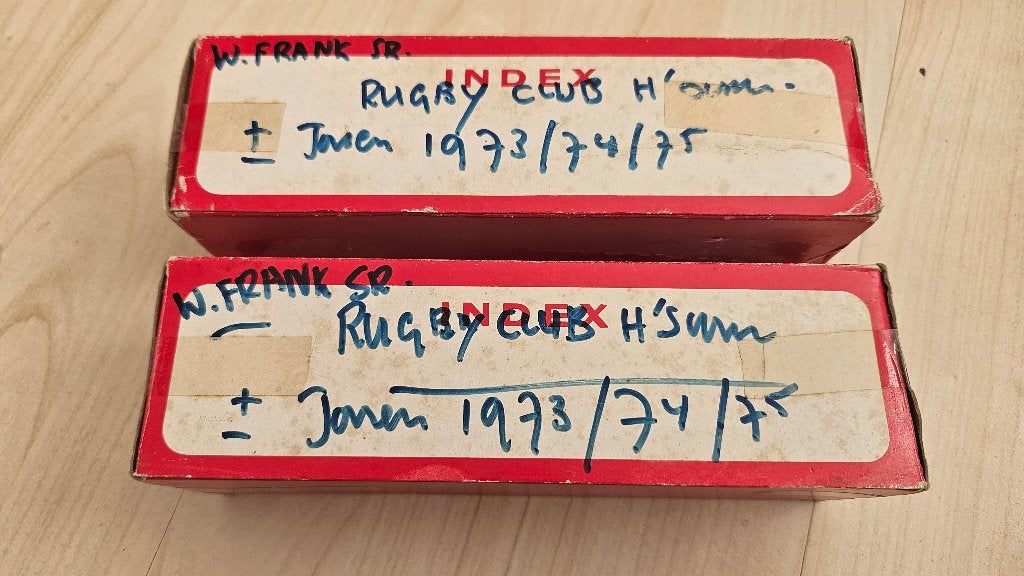 W. FRANK SR.
INDEX
RUGBY CLUB H'sum.
± Jaren 1973/74/75
W. FRANK SR.
INDEX
RUGBY CLUB H'Sum
± Jaren 1973/74/75